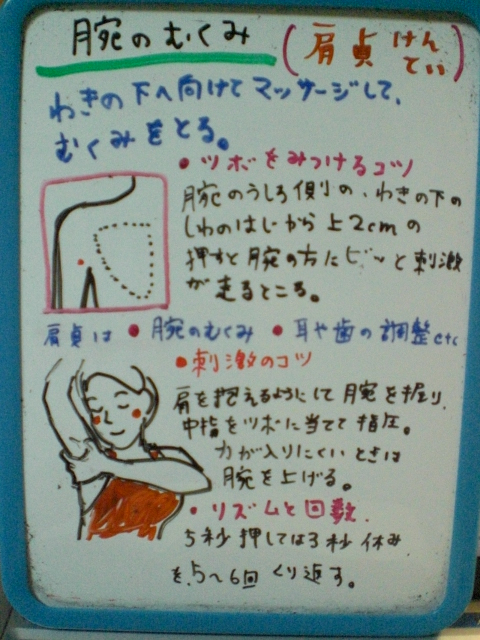 腕のむくみ (肩貞 けんてい)
わきの下へ向けてマッサージして、
むくみをとる。
• ツボをみつけるコツ
腕のうしろ側の、わきの下の
しわのはじから上2cmの
押すと腕の方にビーッと刺激
が走るところ。
肩貞は • 腕のむくみ • 耳や歯の調整etc
• 刺激のコツ
肩を抱えるようにして腕を握り、
中指をツボに当てて指圧。
力が入りにくいときは
腕を上げる。
• リズムと回数.
5秒押しては3秒休み
を、5〜6回くり返す。